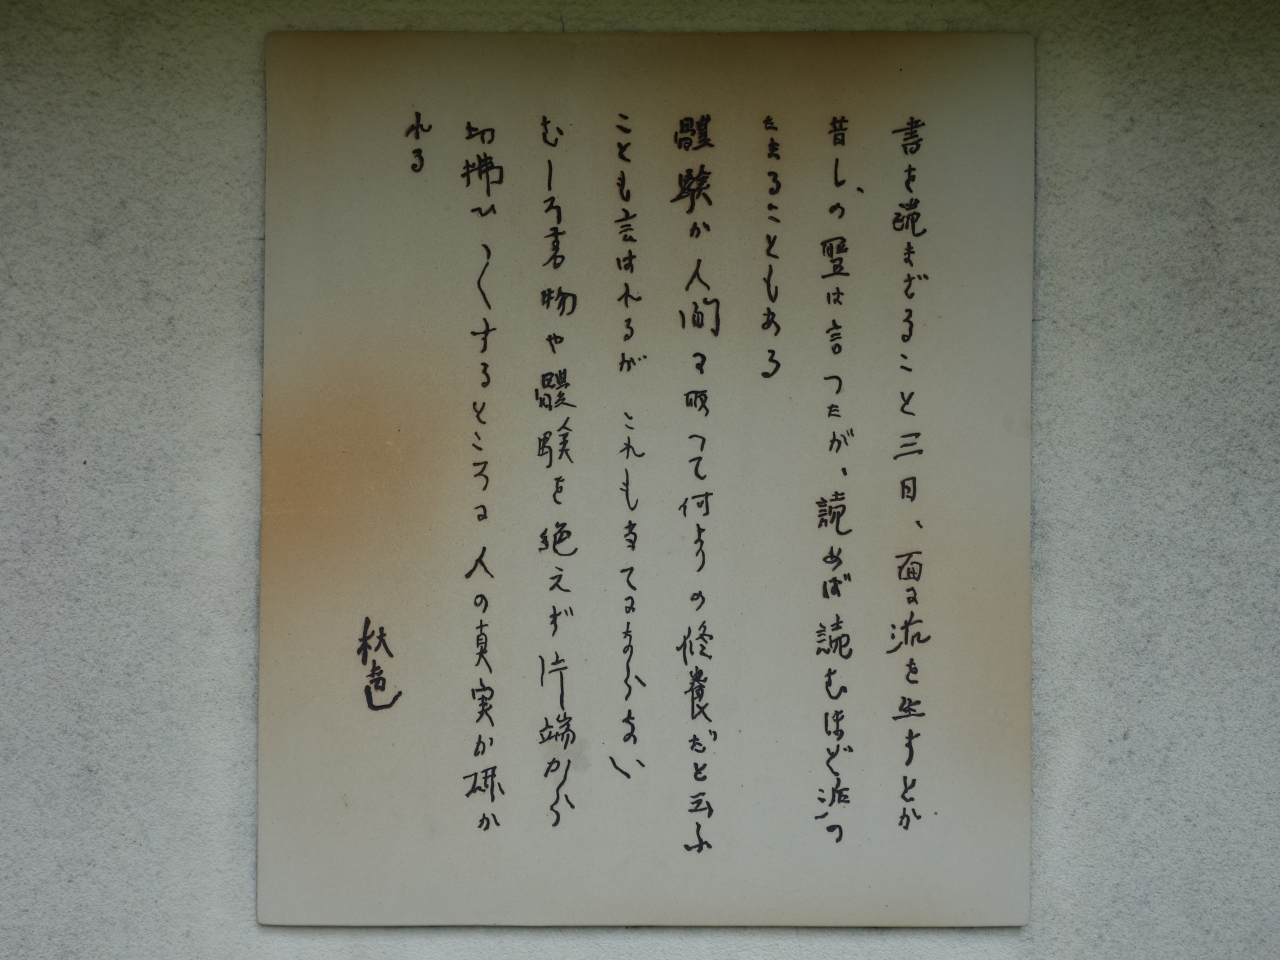 書を読まざること三日、面に垢を生ずとか
昔しの聖は言つたが、読めば読むほど垢の
たまることもある
體験が人間に取つて何よりの修養だと云ふ
ことも言はれるが これも当てにならない
むしろ書物や體験を絶えず片端から
切拂ひ〱するところに人の真実が研か
れる
秋声